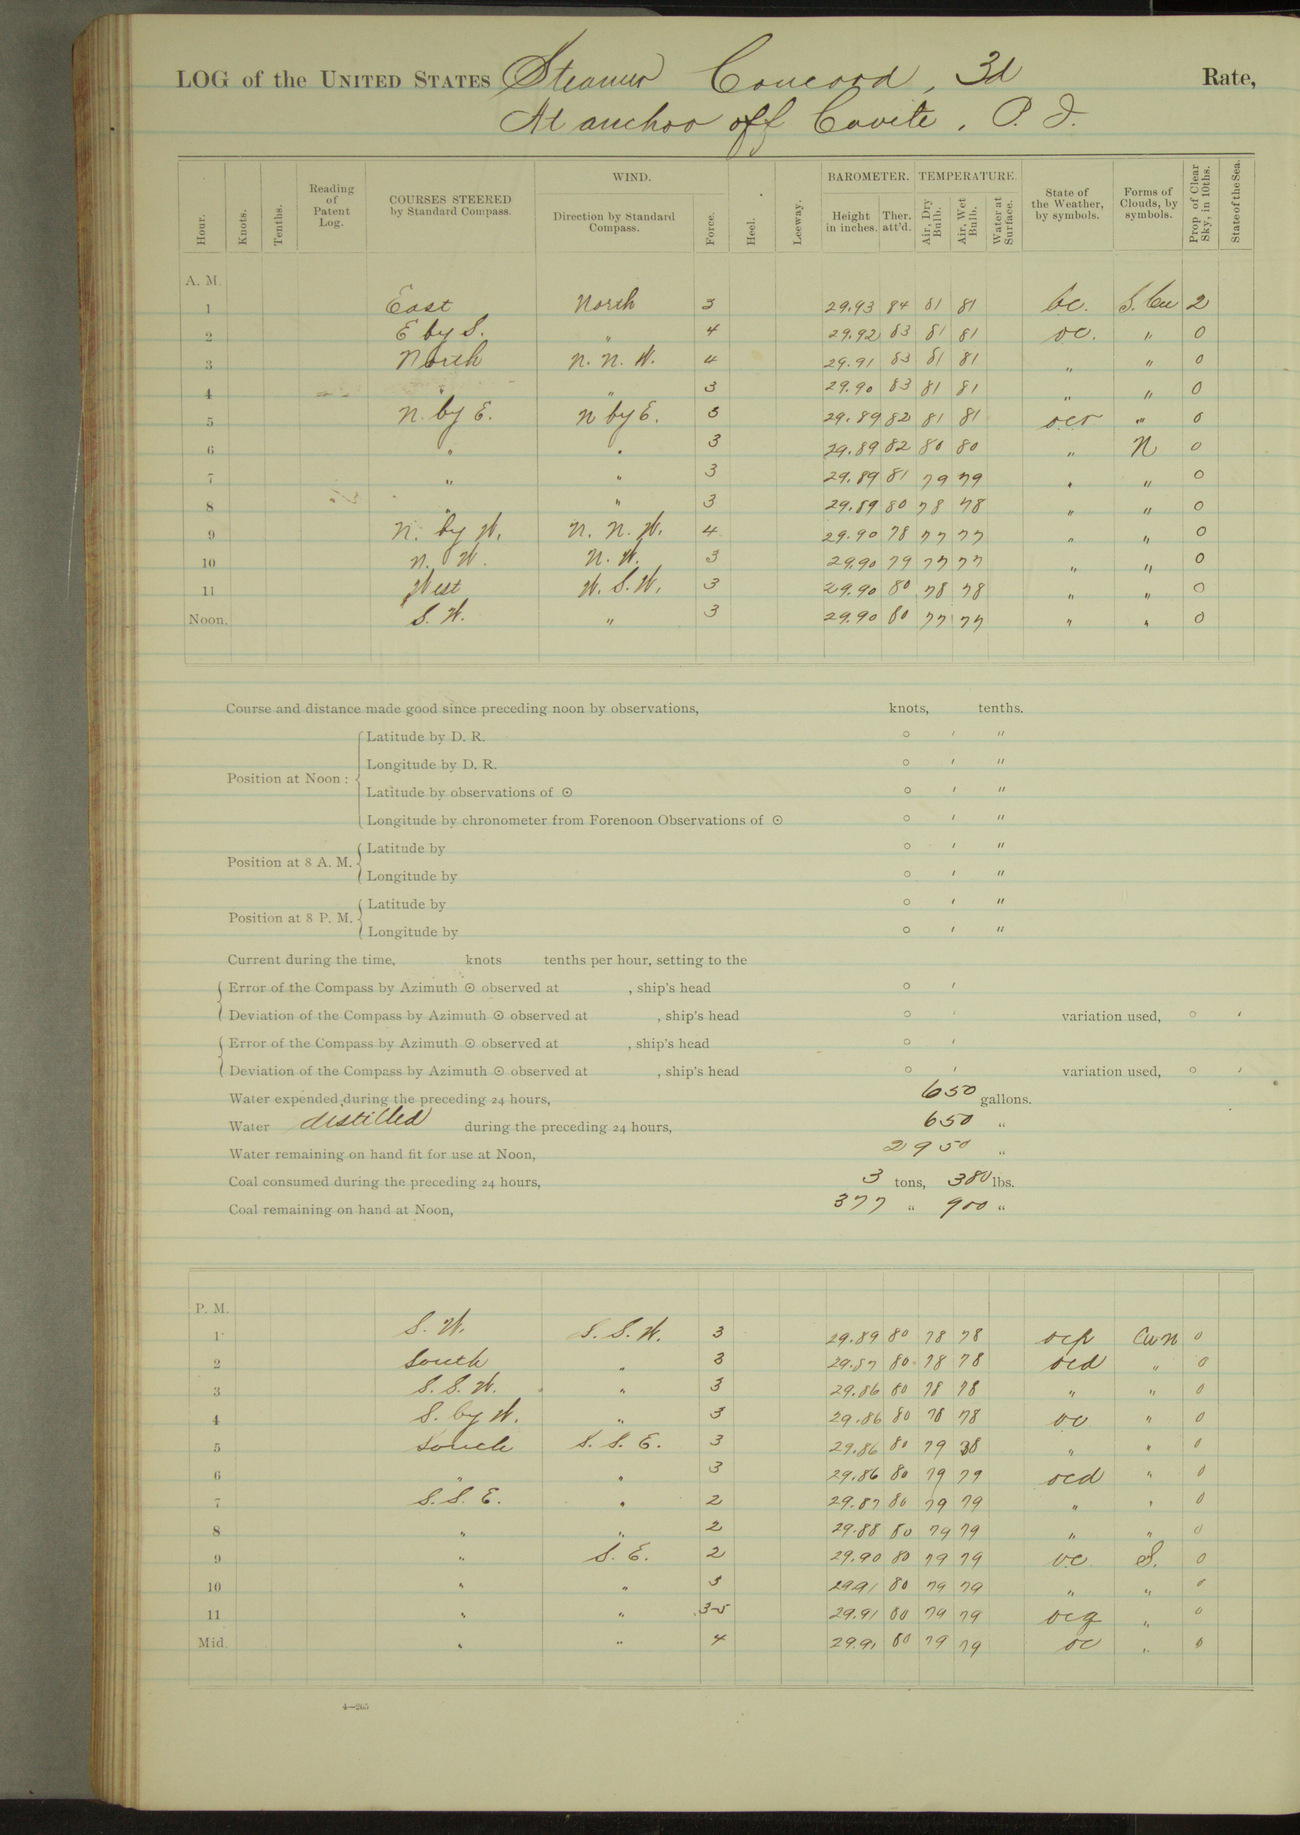 LOG of the UNITED STATES Steamer Concord, 3d Rate,
At anchor off Cavite, P. I.
Hour. Knots. Tenths. Reading of Patent Log. COURSES STEERED by Standard Compass. WIND. Direction by Standard Compass. Force. Heel. Leeway. BAROMETER. Height in inches. Ther. att'd. TEMPERATURE. Air, Dry Bulb. Air, Wet Bulb. Water at Surface. State of the Weather, by symbols. Forms of Clouds, by symbols. Prop. of Clear Sky, in 10ths. State of the Sea.
A. M.
1 East North 3 29.93 84 81 81 bc. S. Cu 2
2 E by S. " 4 29.92 83 81 81 oc. " 0
3 North N. N. W. 4 29.91 83 81 81 " " 0
4 " " 3 29.90 83 81 81 " " 0
5 N. by E. N by E. 3 29.89 82 81 81 ocr " 0
6 " " 3 29.89 82 80 80 " N 0
7 " " 3 29.89 81 79 79 " " 0
8 " " 3 29.89 80 78 78 " " 0
9 N. by W. N. N. W. 4 29.90 78 77 77 " " 0
10 N. W. N. W. 3 29.90 79 77 77 " " 0
11 West W. S. W. 3 29.90 80 78 78 " " 0
Noon. S. W. " 3 29.90 80 77 77 " " 0
Course and distance made good since preceding noon by observations, knots, tenths.
Position at Noon: Latitude by D. R. ° ′ ″
Longitude by D. R. ° ′ ″
Latitude by observations of ☉ ° ′ ″
Longitude by chronometer from Forenoon Observations of ☉ ° ′ ″
Position at 8 A. M. Latitude by ° ′ ″
Longitude by ° ′ ″
Position at 8 P. M. Latitude by ° ′ ″
Longitude by ° ′ ″
Current during the time, knots tenths per hour, setting to the
Error of the Compass by Azimuth ☉ observed at , ship's head ° ′
Deviation of the Compass by Azimuth ☉ observed at , ship's head ° ′ variation used, ° ′
Error of the Compass by Azimuth ☉ observed at , ship's head ° ′
Deviation of the Compass by Azimuth ☉ observed at , ship's head ° ′ variation used, ° ′
Water expended during the preceding 24 hours, 650 gallons.
Water distilled during the preceding 24 hours, 650 "
Water remaining on hand fit for use at Noon, 2950 "
Coal consumed during the preceding 24 hours, 3 tons, 380 lbs.
Coal remaining on hand at Noon, 377 " 900 "
P. M.
1 S. W. S. S. W. 3 29.89 80 78 78 ocp Cu N 0
2 South " 3 29.87 80 78 78 ocd " 0
3 S. S. W. " 3 29.86 80 78 78 " " 0
4 S. by W. " 3 29.86 80 78 78 oc " 0
5 South S. S. E. 3 29.86 80 79 38 " " 0
6 " " 3 29.86 80 79 79 ocd " 0
7 S. S. E. " 2 29.87 80 79 79 " " 0
8 " " 2 29.88 80 79 79 " " 0
9 " S. E. 2 29.90 80 79 79 oc S. 0
10 " " 3 29.91 80 79 79 " " 0
11 " " 3-5 29.91 80 79 79 ocq " 0
Mid. " " 4 29.91 80 79 79 oc " 0
4—265